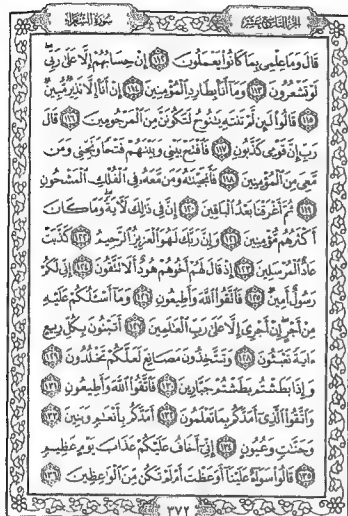 سورة الشعراء الجزء التاسع عشر
قال وما علمى بما كانوا يعملون ١١٢ إن حسابهم إلا على ربى
لو تشعرون ١١٣ وما أنا بطارد المؤمنين ١١٤ إن أنا إلا نذير مبين
١١٥ قالوا لئن لم تنته ينوح لتكونن من المرجومين ١١٦ قال
رب إن قومى كذبون ١١٧ فافتح بينى وبينهم فتحا ونجنى ومن
معى من المؤمنين ١١٨ فأنجينه ومن معه فى الفلك المشحون
١١٩ ثم أغرقنا بعد الباقين ١٢٠ إن فى ذلك لءاية وما كان
أكثرهم مؤمنين ١٢١ وإن ربك لهو العزيز الرحيم ١٢٢ كذبت
عاد المرسلين ١٢٣ إذ قال لهم أخوهم هود ألا تتقون ١٢٤ إنى لكم
رسول أمين ١٢٥ فاتقوا الله وأطيعون ١٢٦ وما أسئلكم عليه
من أجر إن أجرى إلا على رب العلمين ١٢٧ أتبنون بكل ريع
ءاية تعبثون ١٢٨ وتتخذون مصانع لعلكم تخلدون ١٢٩
وإذا بطشتم بطشتم جبارين ١٣٠ فاتقوا الله وأطيعون ١٣١
واتقوا الذى أمدكم بما تعلمون ١٣٢ أمدكم بأنعم وبنين ١٣٣
وجنت وعيون ١٣٤ إنى أخاف عليكم عذاب يوم عظيم
١٣٥ قالوا سواء علينا أوعظت أم لم تكن من الوعظين ١٣٦
٣٧٢